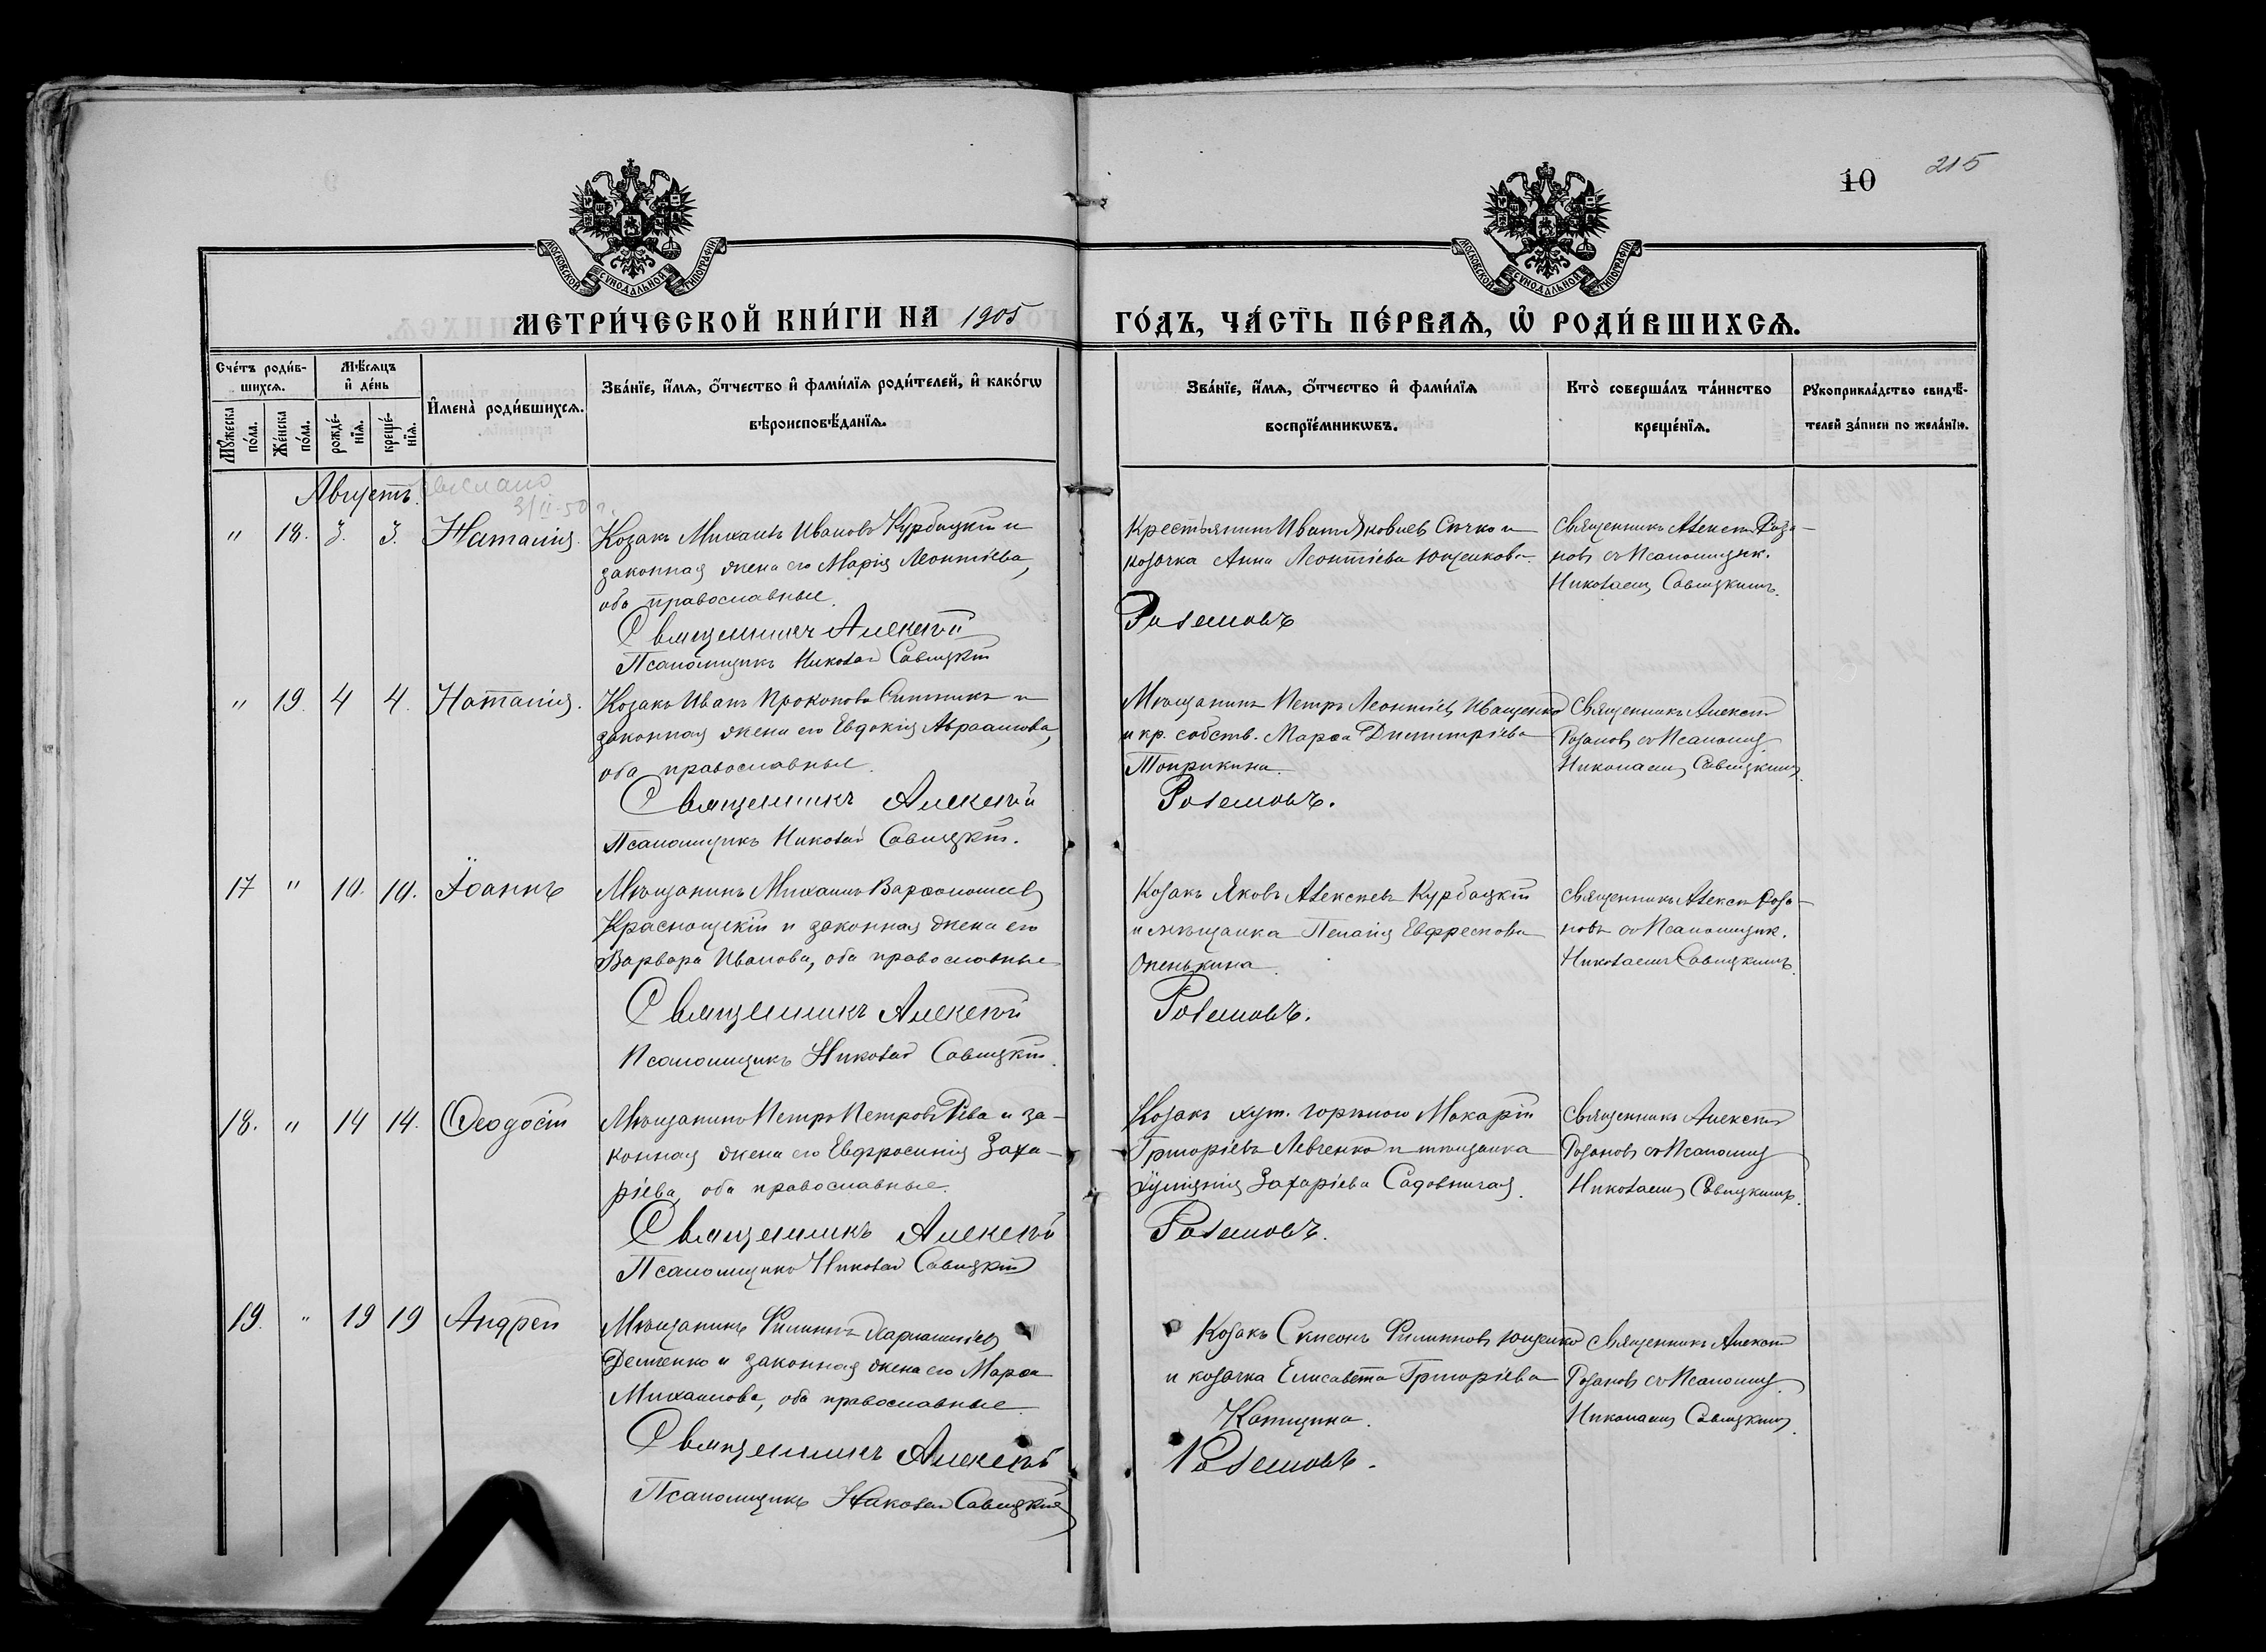 10
215
МОСКОВСКОЙ СѴНОДАЛЬНОЙ ТИПОГРАФІИ
МОСКОВСКОЙ СѴНОДАЛЬНОЙ ТИПОГРАФІИ
МЕТРИ́ЧЕСКОЙ КНИ́ГИ НА 1905
ГО́ДЪ, ЧА́СТЬ ПЕ́РВАѦ, Ѡ҆ РОДИ́ВШИХСѦ.
Сче́тъ роди́в-
шихсѧ.
Мѣ́сѧцъ
и҆ де́нь
И҆мена̀ роди́вшихсѧ.
Зва́нїе, и҆́мѧ, ѻ҆́тчество и҆ фами́лїѧ роди́телей, и҆ како́гѡ
вѣроисповѣ́данїѧ.
Мꙋ́жеска
по́ла.
Же́нска
по́ла.
рожде́-
нїѧ.
креще́-
нїѧ.
Зва́нїе, и҆́мѧ, ѻ҆́тчество и҆ фами́лїѧ
воспрїе́мникѡвъ.
Кто̀ соверша́лъ та́инство
креще́нїѧ.
Рꙋкоприкла́дство свидѣ́-
телей за́писи по жела́нїю.
Августъ.
3/II-50 г.
" 18. 3. 3. Наталія.
Козакъ Михаилъ Ивановъ Курбацкій и
законная жена его Марія Леонтіева,
оба православные.
Священникъ Алексѣй
Псаломщикъ Николай Савицкій
Крестьянинъ Иванъ Яковлевъ Сѣчко и
козачка Анна Леонтіева Ющенкова.
Розановъ
Священникъ Алексѣй Роза-
новъ съ Псаломщик.
Николаемъ Савицкимъ.
" 19. 4 4. Наталія.
Козакъ Иванъ Прокоповъ Ситникъ и
законная жена его Евдокія Авраамова,
оба православные.
Священникъ Алексѣй
Псаломщикъ Николай Савицкій.
Мѣщанинъ Петръ Леонтіевъ Иващенко
и кр. собств. Марѳа Димитріева
Розановъ.
Священникъ Алексѣй
Розановъ съ Псаломщ.
Николаемъ Савицкимъ.
17 " 10. 10. Іоаннъ
Мѣщанинъ Михаилъ Варѳоломеевъ
и законная жена его
Варвара Иванова, оба православные
Священникъ Алексѣй
Псаломщикъ Николай Савицкій.
Козакъ Яковъ Алексѣевъ Курбацкій
и мѣщанка Пелагія
Опенькина.
Розановъ.
Священникъ Алексѣй Роза-
новъ съ Псаломщик.
Николаемъ Савицкимъ.
18. " 14 14. Ѳеодосій
Мѣщанинъ Петръ Петровъ Рева и за-
конная жена его Евфросинія Заха-
ріева, оба православные.
Священникъ Алексѣй
Псаломщикъ Николай Савицкій
Козакъ хут. Макарій
Григоріевъ Левченко и мѣщанка
Захаріева Садовничая.
Розановъ.
Священникъ Алексѣй
Розановъ съ Псаломщ
Николаемъ Савицкимъ.
19. " 19 19 Андрей
Мѣщанинъ Филиппъ Харлампіевъ
Демченко и законная жена его Марѳа
Михаилова, оба православные.
Священникъ Алексѣй
Псаломщикъ Николай Савицкій
Козакъ Филипповъ Ющенко
и козачка Елисавета Григоріева
Розановъ.
Священникъ Алексѣй
Розановъ съ Псаломщ.
Николаемъ Савицкимъ.